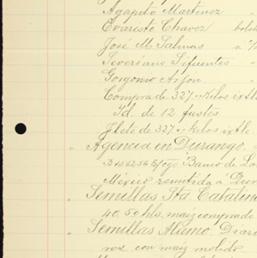 Agapito Martinez "
Evaristo Chavez
José M. Salinas "
Severiano Sifuentes "
Gorgonio
Compra de 327 Kilos ixtle
Id. de 12 fustes
Flete de 327 Kilos ixtle
Agencia en Durango.
Banco de Lo
México remitida á Dur
Semillas Sta Catalina
40.50 hls. maiz comprado
Semillas Alamo.
con maiz molido